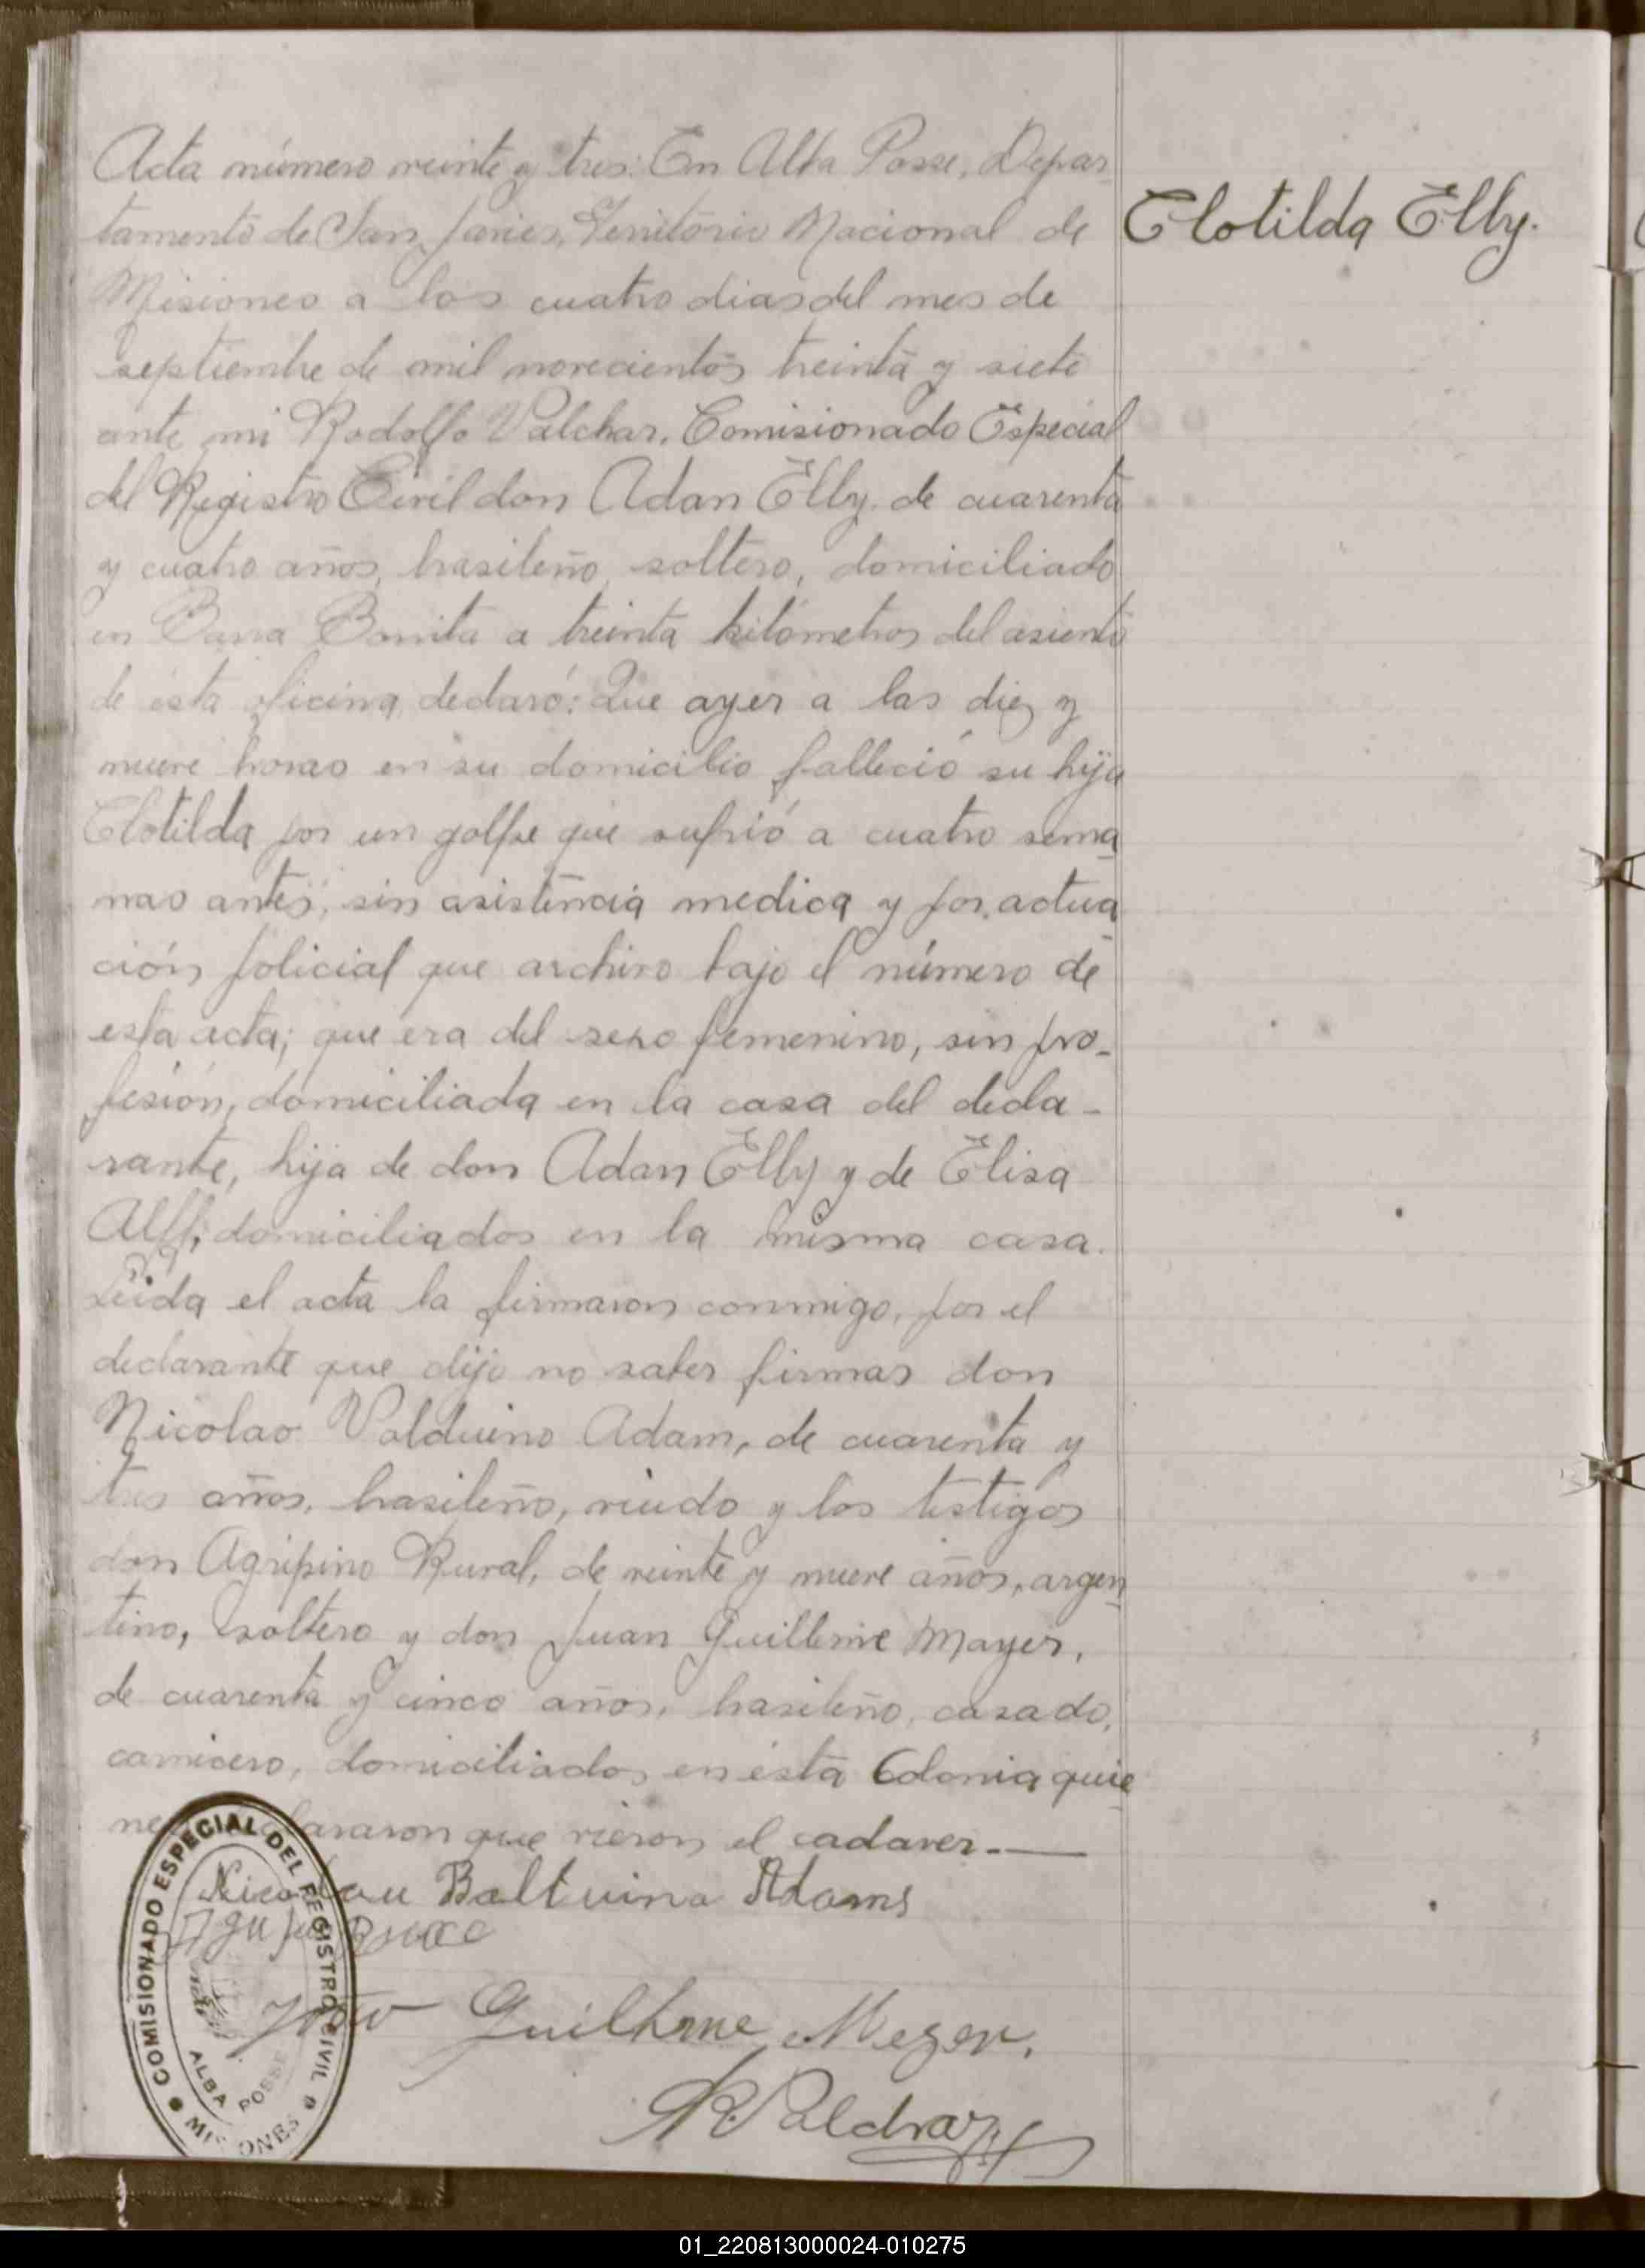 Acta número veinte y tres: En Alba Posse, Depar-
tamento de San Javier, Territorio Nacional de
Misiones a los cuatro dias del mes de
septiembre de mil novecientos treinta y siete
ante mi Rodolfo Valchar, Comisionado Especial
del Registro Civil don Adan Elly, de cuarenta
y cuatro años, brasileño, soltero, domiciliado
en Barra Bonita a treinta kilómetros del asiento
de ésta oficina, declaró: Que ayer a las diez y
nueve horas en su domicilio falleció su hija
Clotilda por un golpe que sufrió a cuatro sema-
nas antes, sin asistencia medica y por actua-
ción policial que archivo bajo el número de
esta acta; que era del sexo femenino, sin pro-
fesión, domiciliada en la casa del decla-
rante, hija de don Adan Elly y de Elisa
Alff, domiciliados en la misma casa.
Leida el acta la firmaron conmigo, por el
declarante que dijo no saber firmar don
Nicolao Valduino Adam, de cuarenta y
tres años, brasileño, viudo y los testigos
don Agripino Rural, de veinte y nueve años, argen-
tino, soltero y don Juan Guillerme Mayer,
de cuarenta y cinco años, brasileño, casado,
carnicero, domiciliados en ésta Colonia quie-
nes declararon que vieron el cadaver.—
Nicolau Baltuino Adams
Guilherme Mezer.
Clotilda Elly.
COMISIONADO ESPECIAL DEL REGISTRO CIVIL
ALBA POSSE
MISIONES
01_220813000024-010275